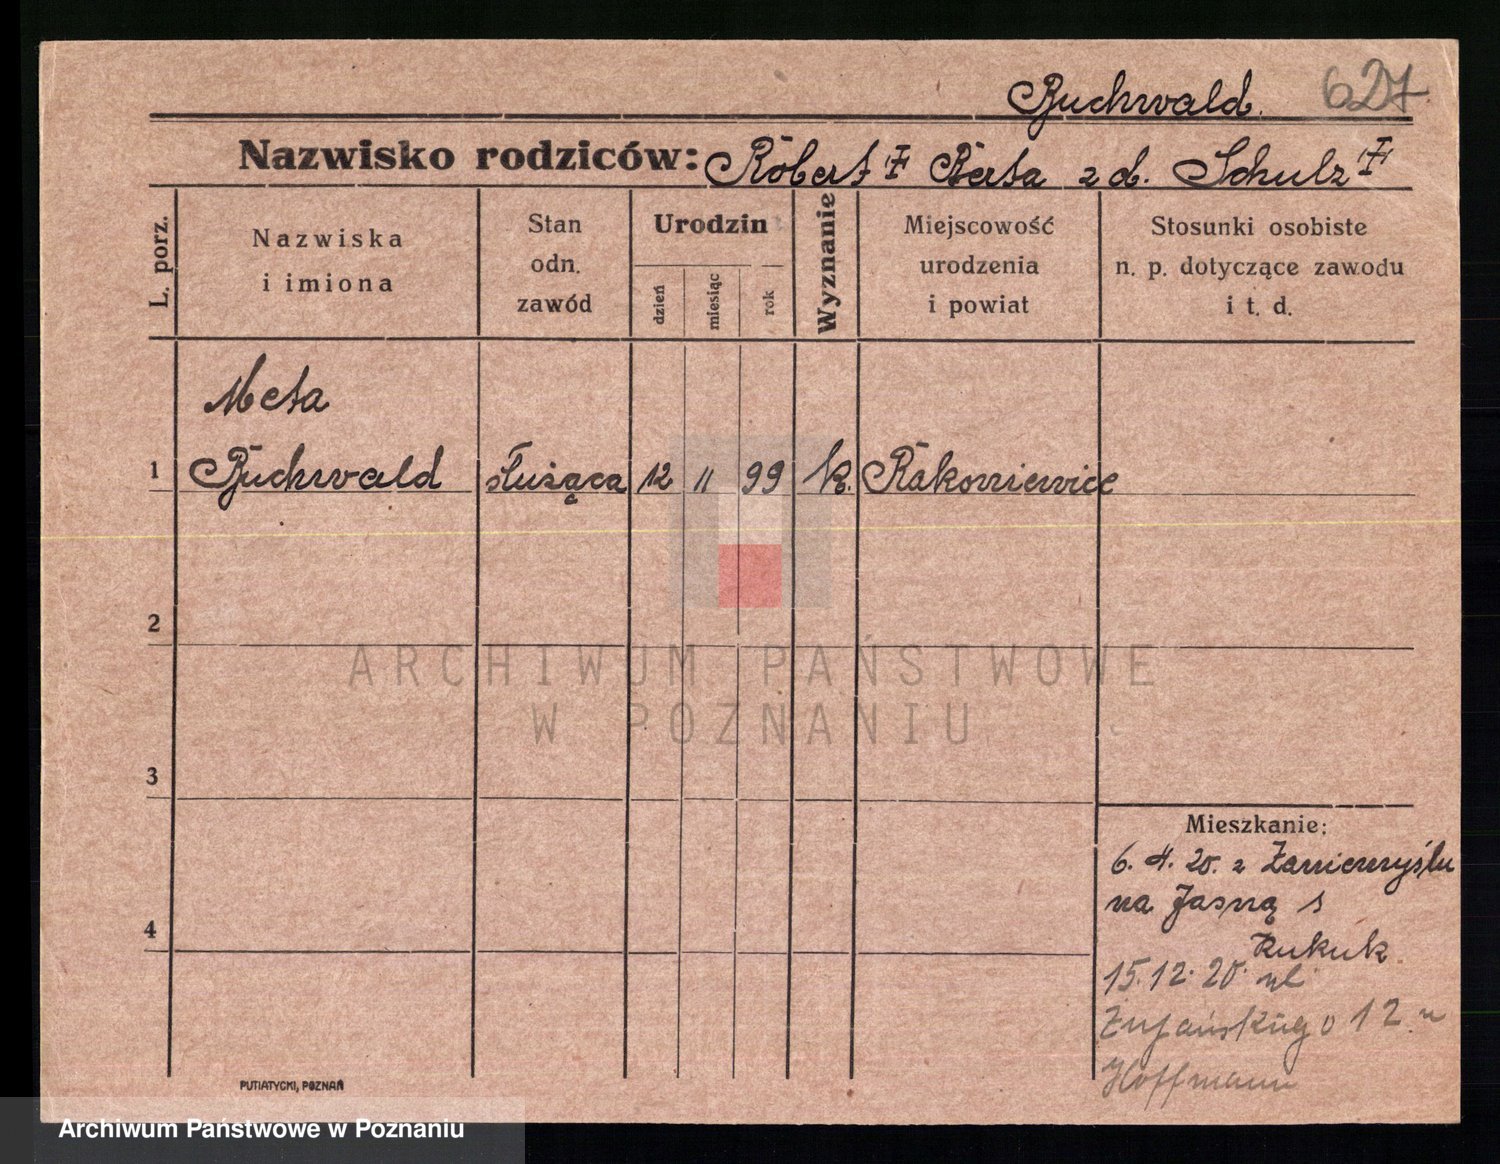 Buchwald. 627.
Nazwisko rodziców: Robert Berta z d. Schulz
L. porz.
Nazwiska i imiona
Stan odn. zawód
Urodzin
dzień
miesiąc
rok
Wyznanie
Miejscowość urodzenia i powiat
Stosunki osobiste n. p. dotyczące zawodu i t. d.
Meta
1 Buchwald służąca 12 11 99 k. Rakoniewice
2
ARCHIWUM PAŃSTWOWE
W POZNANIU
3
Mieszkanie:
6. 4. 20. z Zaniemyślu
na Jasną
4
Kukuk
15.12.20. ul
12. u
Hoffmann
PUTIATYCKI, POZNAŃ
Archiwum Państwowe w Poznaniu